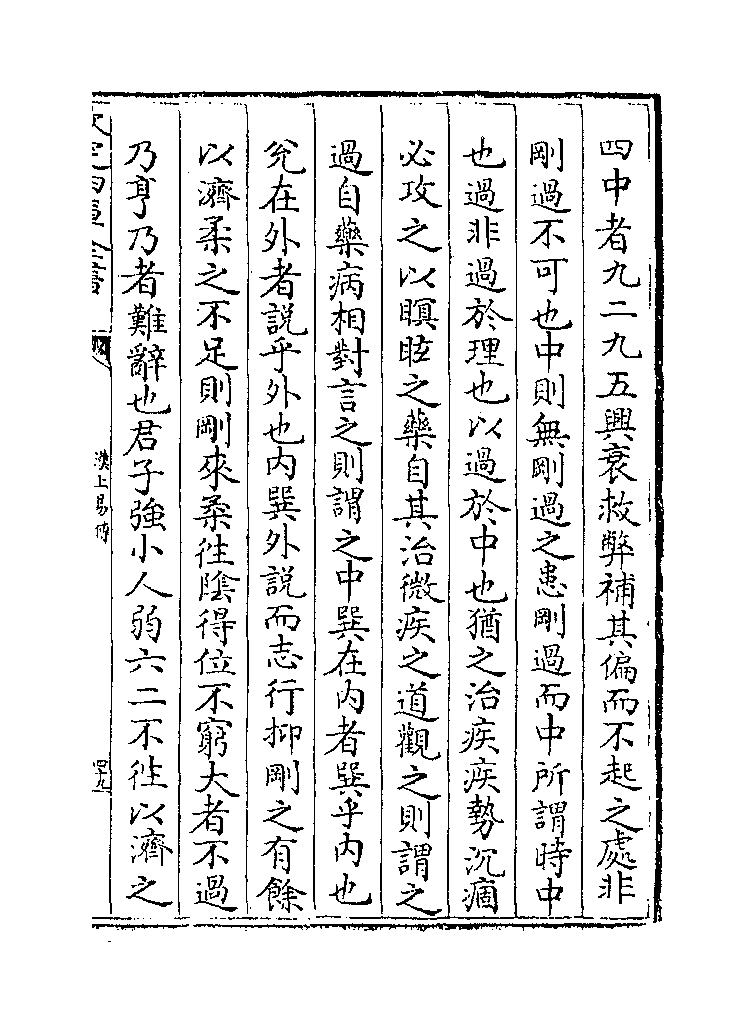 四中者九二九五興衰救弊補其偏而不起之處非
剛過不可也中則無剛過之患剛過而中所謂時中
也過非過於理也以過於中也猶之治疾疾勢沉痼
必攻之以瞑眩之藥自其治微疾之道觀之則謂之
過自藥病相對言之則謂之中巽在内者巽乎内也
兊在外者説乎外也内巽外説而志行抑剛之有餘
以濟柔之不足則剛來柔徃隂得位不窮大者不過
乃亨乃者難辭也君子強小人弱六二不徃以濟之
欽定四庫全書
漢上易傳
四十九